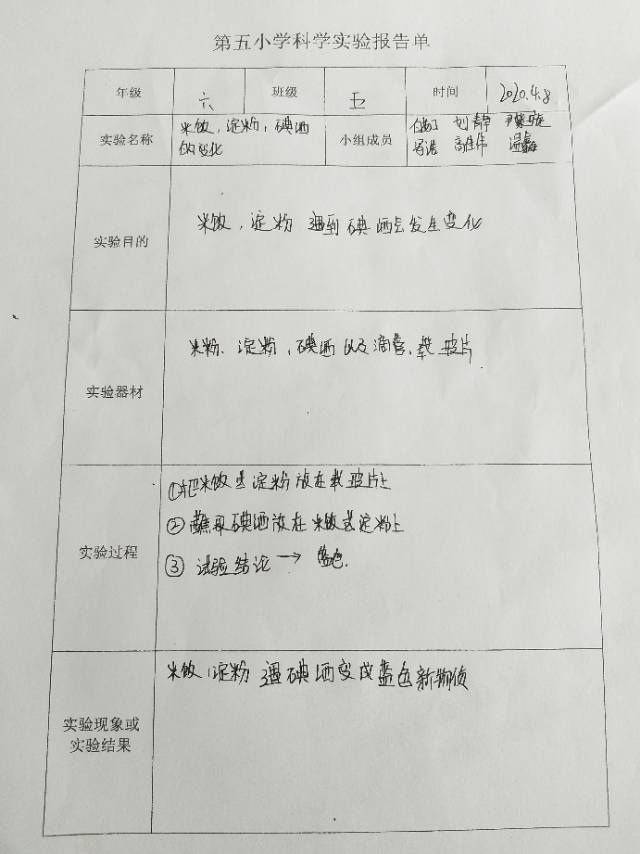 第五小学科学实验报告单
年级 六 班级 五 时间 2020.4.8
实验名称 米饭，淀粉，碘酒的变化 小组成员 刘静
实验目的 米饭，淀粉 遇到碘酒会发生变化
实验器材 米粉、淀粉，碘酒以及滴管、载玻片
实验过程
①把米饭或淀粉放在载玻片上
②蘸取碘酒放在米饭或淀粉上
③试验结论→蓝色.
米饭，淀粉遇碘酒变成蓝色新物质
实验现象或
实验结果